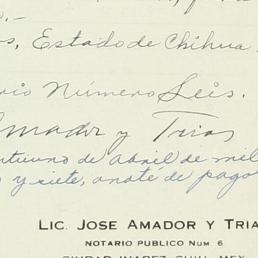 os, Estado de Chihua
rio Número Seis.
Amador y Trias
ntiuno de abril de mil
y siete, anoté de pago
LIC. JOSE AMADOR Y TRIA
NOTARIO PUBLICO NUM. 6
CIUDAD JUAREZ, CHIH., MEX.